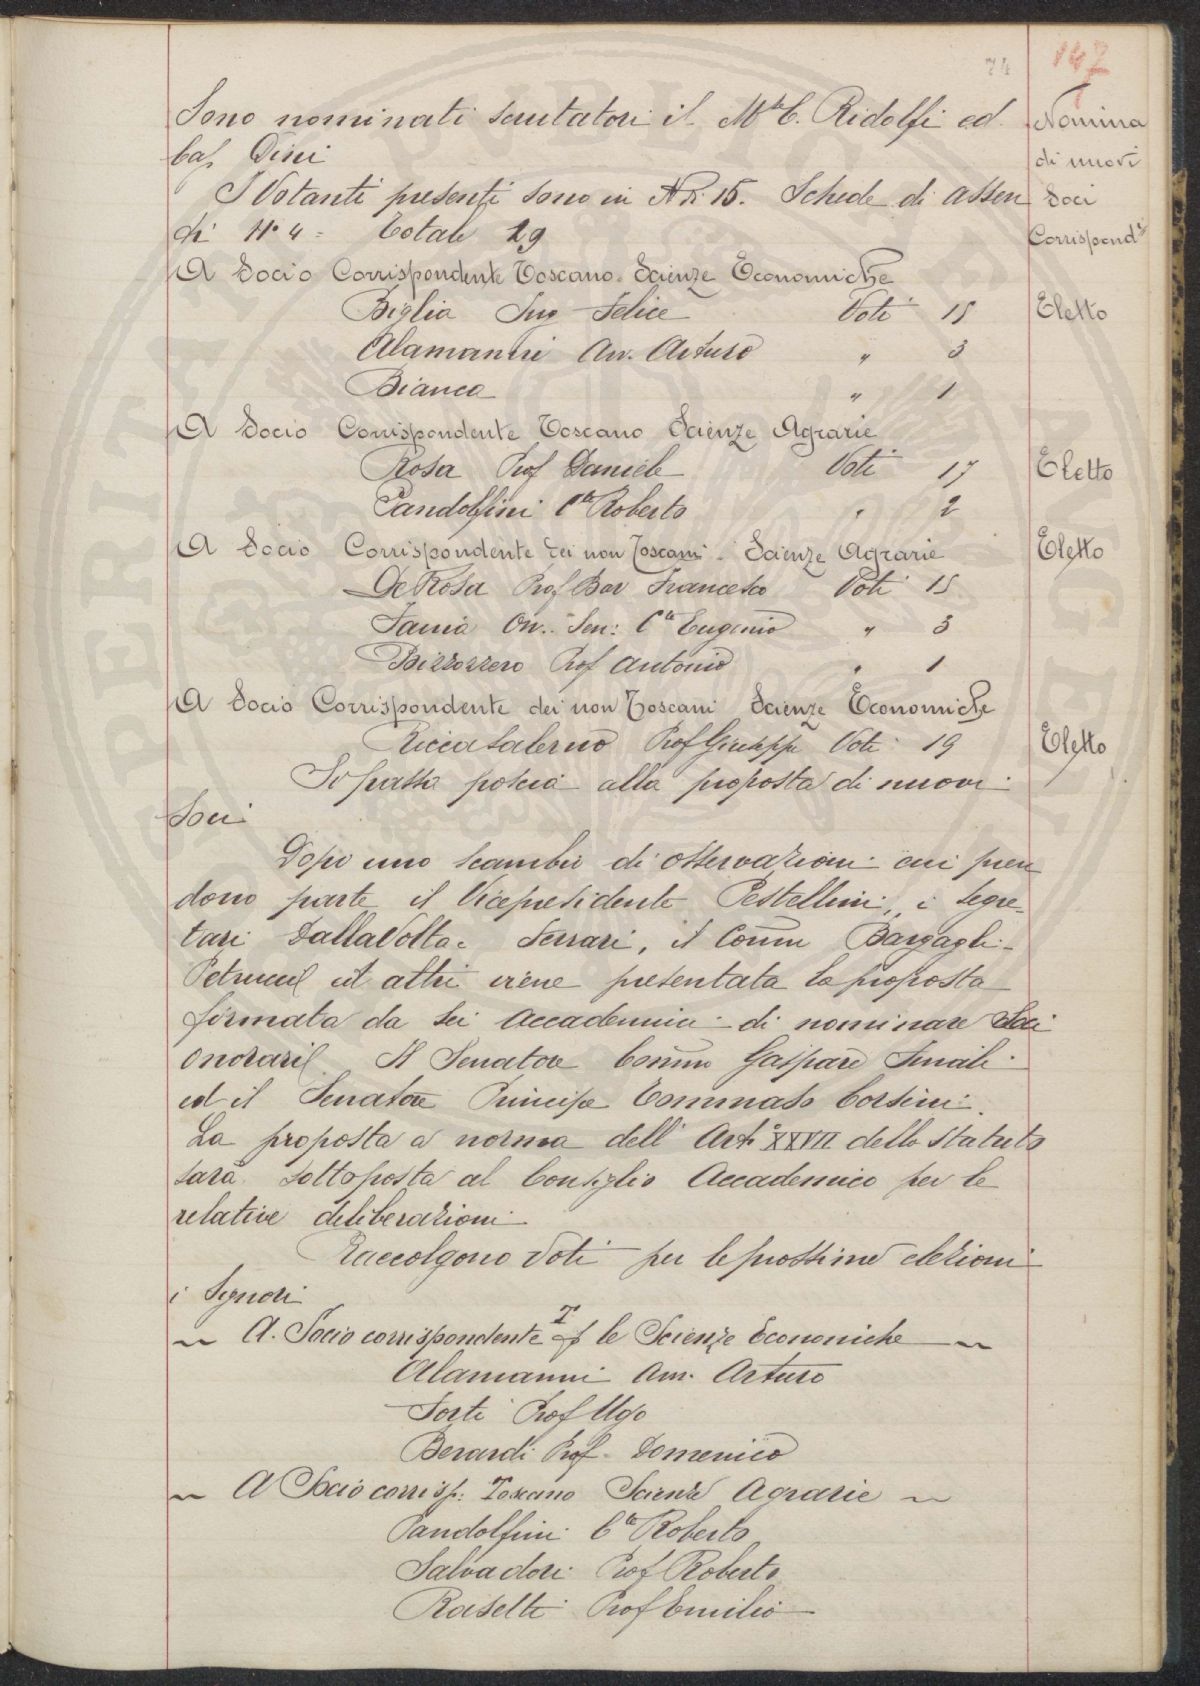 74
147
Sono nominati scrutatori il Mse C. Ridolfi ed
Caf. Dini
I Votanti presenti sono in N. di 15. Schede di assen
ti N.o 4 = Totale 19
A Socio Corrispondente Toscano. Scienze Economiche
Biglia Ing Felice Voti 15
Alamanni Avv. Arturo " 3
Bianca " 1
A Socio Corrispondente Toscano Scienze Agrarie
Rosa Prof Daniele Voti 17
Pandolfini Cte Roberto " 2
A Socio Corrispondente dei non Toscani - Scienze Agrarie
De Rosa Prof Bar Francesco Voti 15
Faina On. Sen: Cte Eugenio " 3
Bizzozzero Prof Antonio " 1
A Socio Corrispondente dei non Toscani Scienze Economiche
Ricca Salerno Prof Giuseppe Voti 19
Si passa poscia alla proposta di nuovi
Soci
Dopo uno scambio di osservazioni cui pren
dono parte il Vicepresidente Pestellini, i Segre-
tari Dalla Volta e Ferrari, il Comm Bargagli-
Petrucci ed altri viene presentata la proposta
firmata da sei accademici di nominare Soci
onorari Il Senatore Comm Gaspare Finali
ed il Senatore Principe Tommaso Corsini.
La proposta a norma dell' Arto XXVII dello Statuto
sarà sottoposta al Consiglio Accademico per le
relative deliberazioni
Raccolgono Voti per le prossime elezioni
i Signori
~ A. Socio corrispondente T p le Scienze Economiche ~
Alamanni Avv. Arturo
Sorti Prof Ugo
Berardi Prof. Domenico
~ A Socio corrisp: Toscano Scienze Agrarie ~
Pandolfini Cte Roberto
Salvadori Prof Roberto
Rasetti Prof Emilio
Nomina
di nuovi
Soci
Corrispond.ti
Eletto
Eletto
Eletto
Eletto